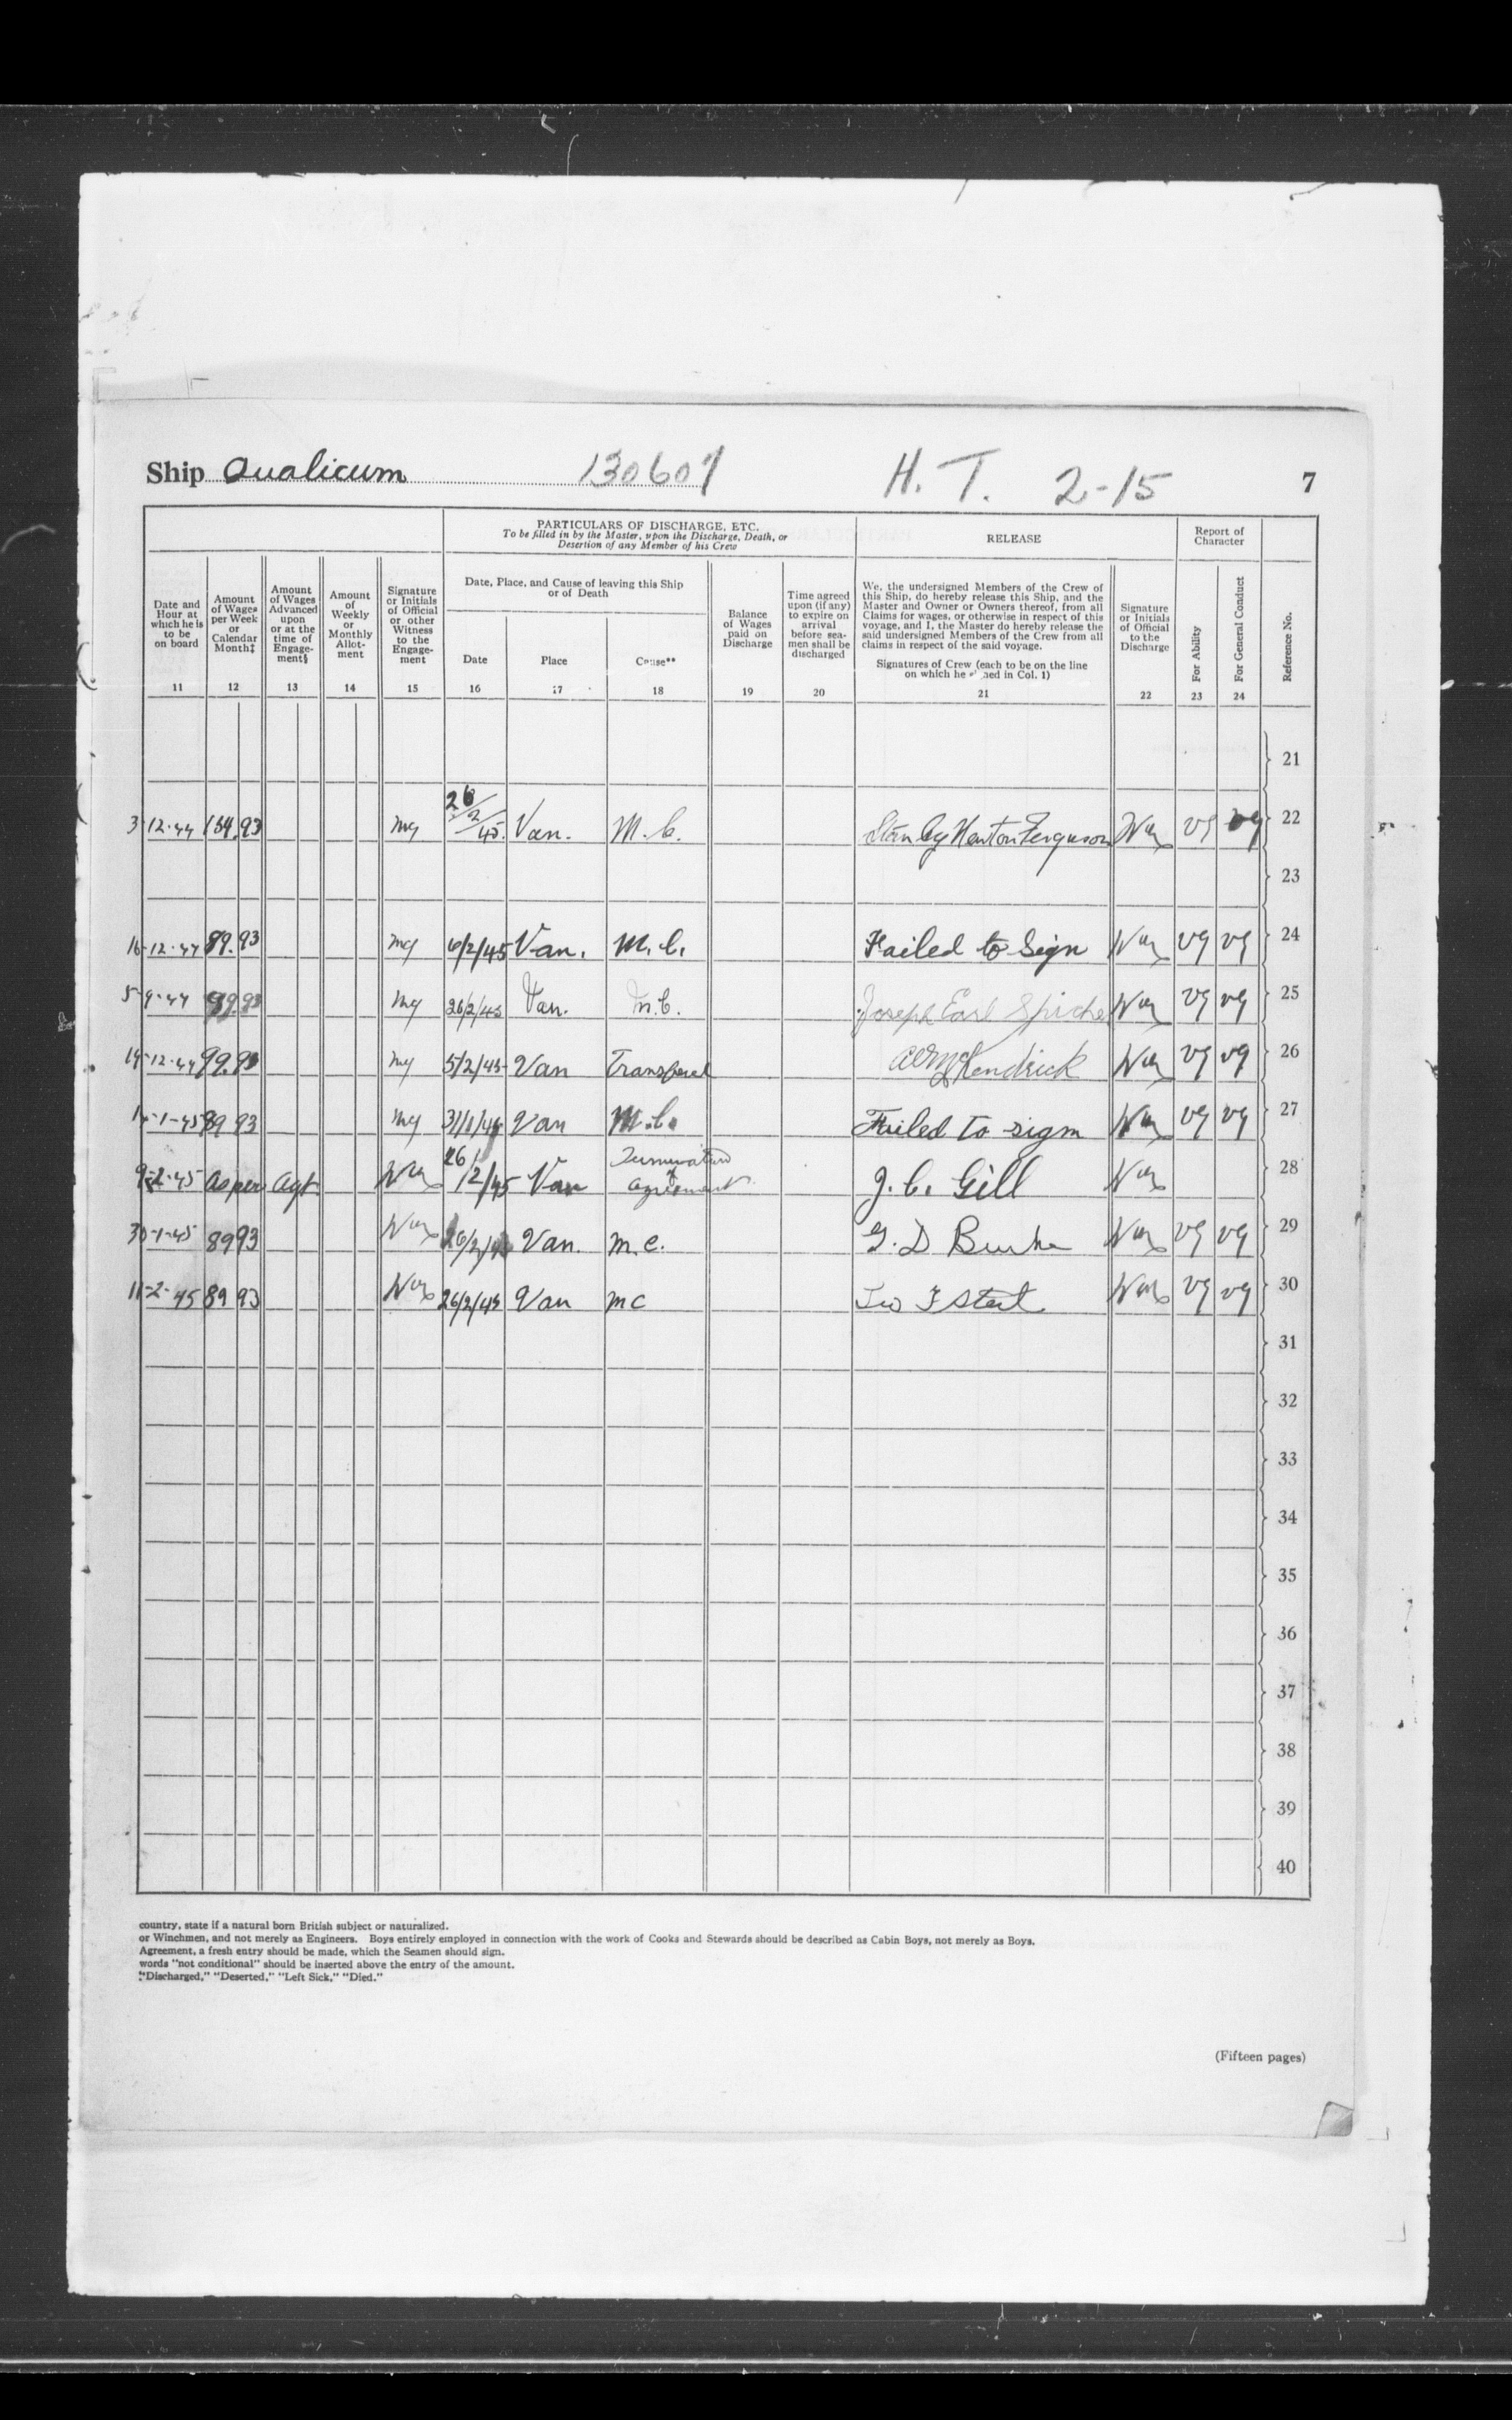 Ship Qualicum 130607 H. T. 2-15 7
PARTICULARS OF DISCHARGE, ETC.
To be filled in by the Master, upon the Discharge, Death, or
Desertion of any Member of his Crew
RELEASE
Report of
Character
Date and
Hour at
which he is
to be
on board
11
Amount
of Wages
per Week
or
Calendar
Month‡
12
Amount
of Wages
Advanced
upon
or at the
time of
Engage-
ment§
13
Amount
of
Weekly
or
Monthly
Allot-
ment
14
Signature
or Initials
of Official
or other
Witness
to the
Engage-
ment
15
Date, Place, and Cause of leaving this Ship
or of Death
Date
16
Place
17
Cause**
18
Balance
of Wages
paid on
Discharge
19
Time agreed
upon (if any)
to expire on
arrival
before sea-
men shall be
discharged
20
We, the undersigned Members of the Crew of
this Ship, do hereby release this Ship, and the
Master and Owner or Owners thereof, from all
Claims for wages, or otherwise in respect of this
voyage, and I, the Master do hereby release the
said undersigned Members of the Crew from all
claims in respect of the said voyage.
Signatures of Crew (each to be on the line
on which he ned in Col. 1)
21
Signature
or Initials
of Official
to the
Discharge
22
For Ability
23
For General Conduct
24
Reference No.
21
3-12-44 184.93 26/2/45 Van. M.C. Stanley Newton Ferguson VG VG 22
23
16-12-44 89.93 6/2/45 Van. M.C. Failed to Sign VG VG 24
5-9-44 99.93 26/2/45 Van. M.C. Joseph Earl VG VG 25
19-12-44 99.93 5/2/45 Van Transfered Kendrick VG VG 26
-1-45 89 93 31/1/45 Van M.C. Failed to sign VG VG 27
9-2-45 As per Agt. 26/2/45 Van Termination of agreement J. C. Gill 28
30-1-45 89 93 26/2/45 Van. M.C. G. D Burke VG VG 29
11-2-45 89 93 26/2/45 Van MC VG VG 30
31
32
33
34
35
36
37
38
39
40
country, state if a natural born British subject or naturalized.
or Winchmen, and not merely as Engineers. Boys entirely employed in connection with the work of Cooks and Stewards should be described as Cabin Boys, not merely as Boys.
Agreement, a fresh entry should be made, which the Seamen should sign.
words "not conditional" should be inserted above the entry of the amount.
"Discharged," "Deserted," "Left Sick," "Died."
(Fifteen pages)